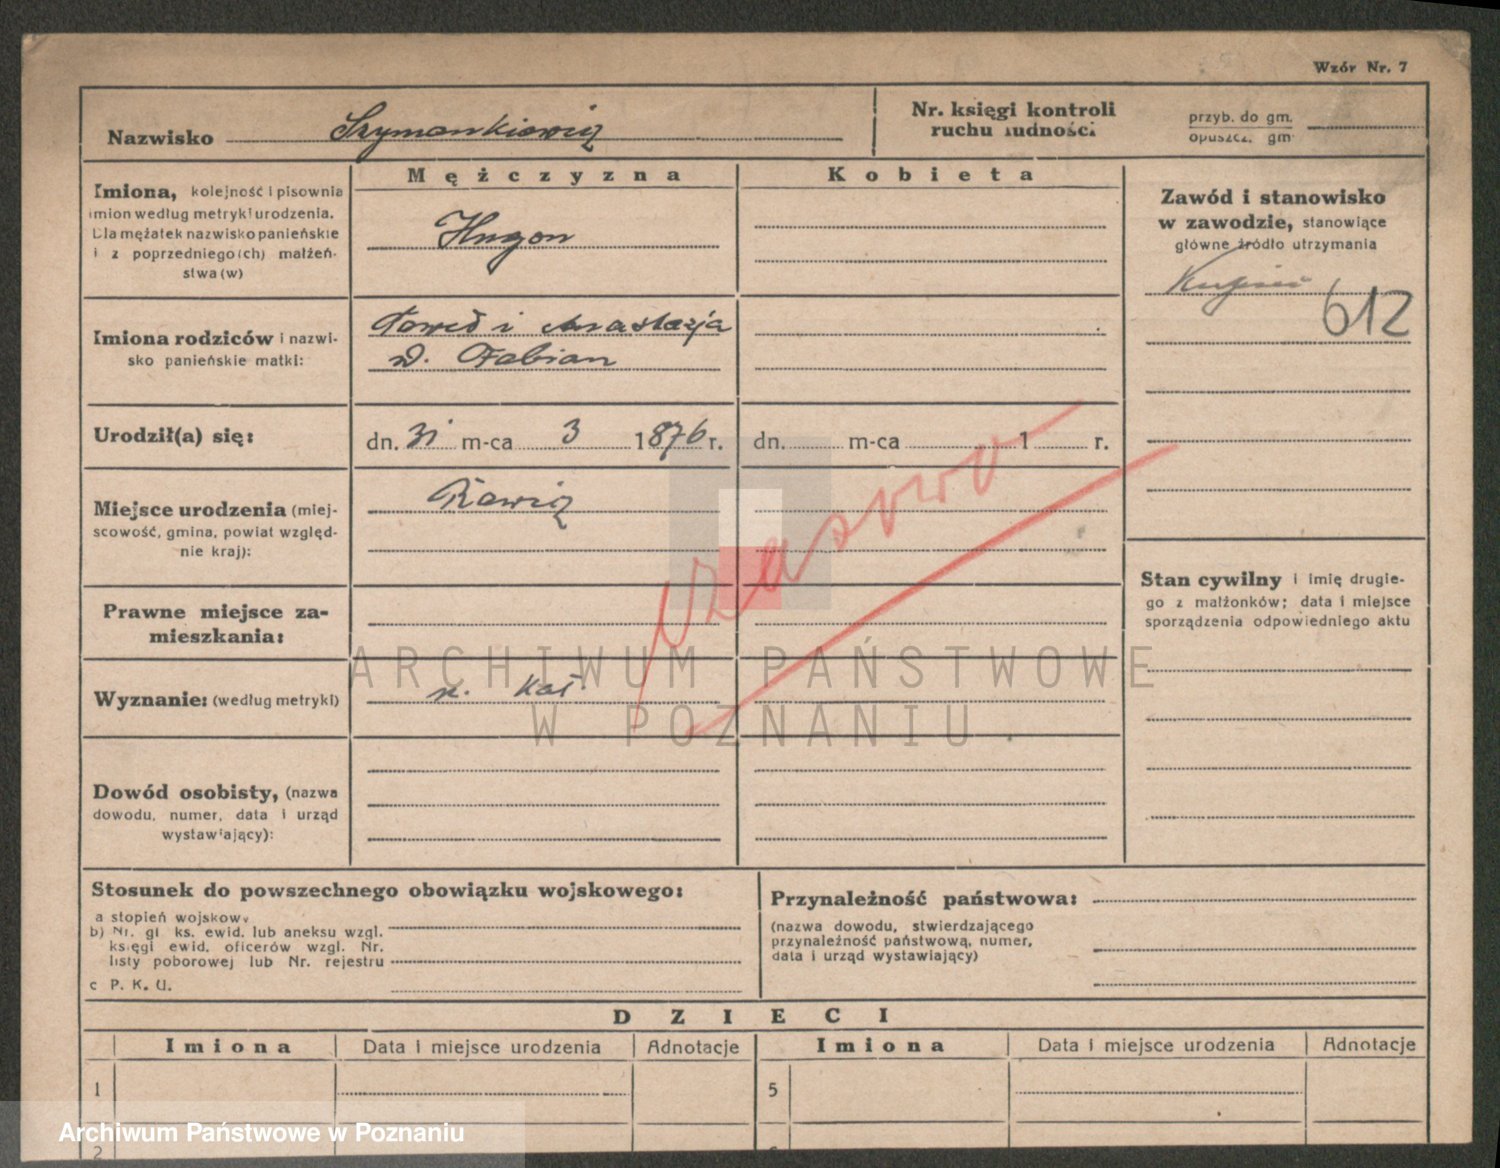 Wzór Nr. 7
Nazwisko Szymankiewicz
Nr. księgi kontroli
ruchu ludności
przyb. do gm.
opuszcz. gm
Imiona, kolejność i pisownia
imion według metryki urodzenia.
Dla mężatek nazwisko panieńskie
i z poprzedniego(ch) małżeń-
stwa (w)
Mężczyzna
Hugon
Kobieta
Zawód i stanowisko
w zawodzie, stanowiące
główne źródło utrzymania
Kupiec
612
Imiona rodziców i nazwi-
sko panieńskie matki:
Paweł i Anastazja
d. Fabian
Urodził(a) się:
dn. 31 m-ca 3 1876 r.
dn. m-ca 1 r.
Miejsce urodzenia (miej-
scowość, gmina, powiat względ-
nie kraj):
Rawicz
czasowo
Prawne miejsce za-
mieszkania:
Stan cywilny i imię drugie-
go z małżonków; data i miejsce
sporządzenia odpowiedniego aktu
Wyznanie: (według metryki)
r. kat.
ARCHIWUM PAŃSTWOWE
W POZNANIU
Dowód osobisty, (nazwa
dowodu, numer, data i urząd
wystawiający):
Stosunek do powszechnego obowiązku wojskowego:
a stopień wojskow.
b) Nr. gl ks. ewid. lub aneksu wzgl.
księgi ewid. oficerów wzgl. Nr.
listy poborowej lub Nr. rejestru
c P. K. U.
Przynależność państwowa:
(nazwa dowodu, stwierdzającego
przynależność państwową, numer,
data i urząd wystawiający)
DZIECI
Imiona Data i miejsce urodzenia Adnotacje Imiona Data i miejsce urodzenia Adnotacje
1 5
2
Archiwum Państwowe w Poznaniu